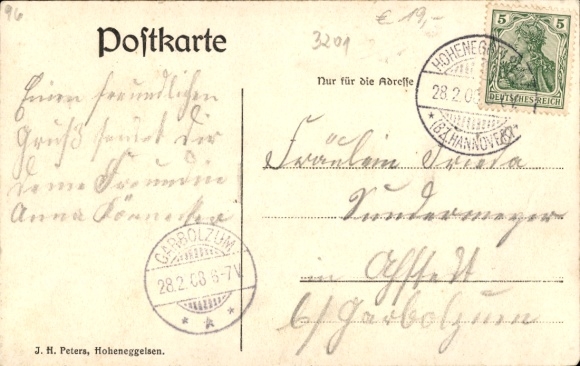 96
€ 19,-
3201
Postkarte
Nur für die Adresse
5 5
DEUTSCHES REICH
HOHENEGGELSEN
28.2.08
* (BZ. HANNOVER) *
Einen freundlichen
Gruß sendet Dir
deine Freundin
Anna
Fräulein Frieda
Sundermeyer
in Ahstedt
b/ Garbolzum
GARBOLZUM
28.2.08 6-7V
* * *
J. H. Peters, Hoheneggelsen.